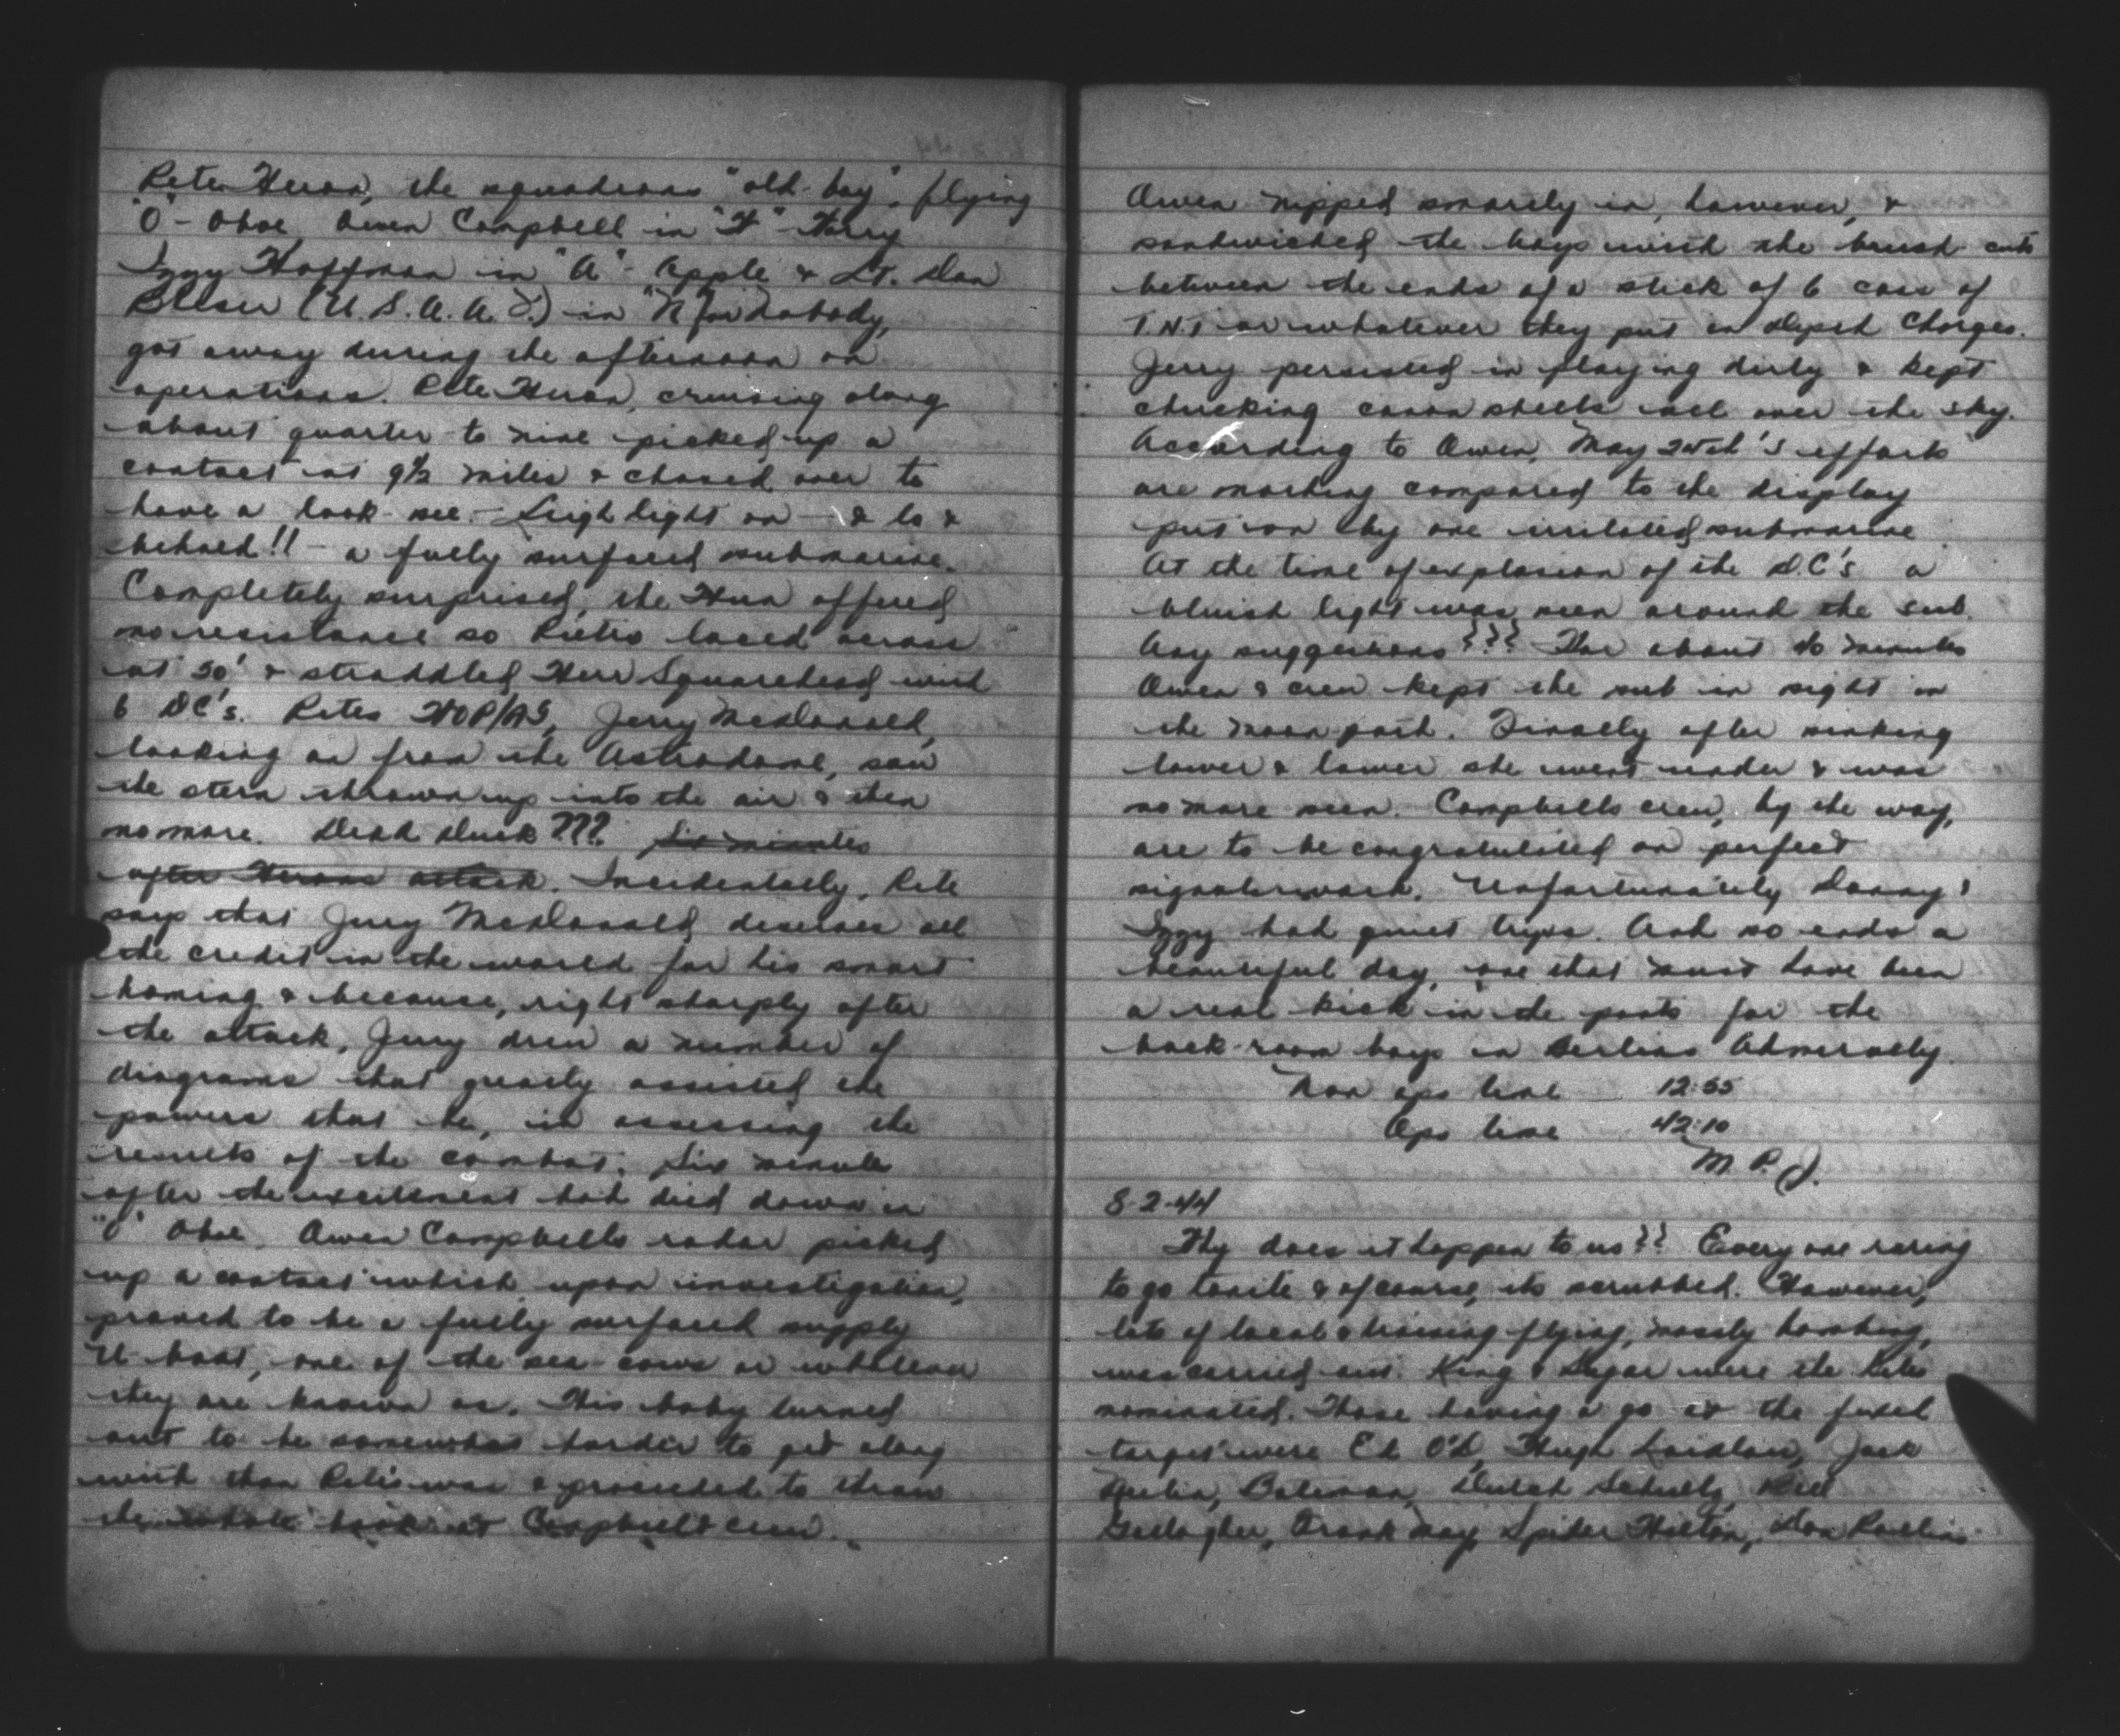 Pete Heron, the squadrons "old-boy", flying
"O" - Oboe, Owen Campbell in "H" - Harry
Izzy Hoffman in "A" - Apple & Lt. Dan
(U.S.A.A.F.) in "N" for Nobody,
got away during the afternoon on
operations. Pete Heron, cruising along
about quarter to nine picked up a
contact at 9½ miles & chased over to
have a look-see. - Leigh light on - & lo &
behold!! - a fully surfaced submarine.
Completely surprised, the Hun offered
no resistance so Pietro laced across
at 50' & straddled Herr Squarehead with
6 DC's. Petes WOP/AG, Jerry McDonald,
looking on from the Astrodome, saw
the stern thrown up into the air & then
no more. Dead Duck ???. Six minutes
after Herons attack. Incidentally, Pete
says that Jerry McDonald deserves all
the credit in the world for his smart
homing & because, right sharply after
the attack, Jerry drew a number of
diagrams that greatly assisted the
powers that be, in assessing the
results of the combat. Six minutes
after the excitement had died down in
"O" Oboe. Owen Campbells radar picked
up a contact which, upon investigation,
proved to be a fully surfaced supply
U-boat, one of the sea-cows or whatever
they are known as. This baby turned
out to be somewhat harder to get along
with than Pete's was & proceeded to throw
the whole book at Campbell & crew.
Owen nipped smartly in, however, &
sandwiched the boys with the brush cuts
between the ends of a stick of 6 cans of
TNT or whatever they put in Depth Charges.
Jerry persisted in playing dirty & kept
chucking canon shells all over the sky.
According to Owen, May 24th's efforts
are nothing compared to the display
put on by one irritated submarine.
At the time of explosion of the D.C's a
bluish light was seen around the sub.
Any suggestions??? For about 40 minutes
Owen & crew kept the sub in sight in
the moon path. Finally after sinking
lower & lower she went under & was
no more seen. Campbells crew, by the way,
are to be congratulated on perfect
signalswork. Unfortunately Danny &
Izzy had quiet trips. And so ends a
beautiful day, one that must have been
a real kick in the pants for the
back-room boys in Berlins Admiralty.
Non ops time 12:55
Ops time 42:10
M. P. J.
8-2-44
Why does it happen to us?? Everyone raring
to go tonite & of course, its scrubbed. However,
lots of local & training flying, mostly bombing,
was carried out. King & Sugar were the kites
nominated. Those having a go at the fixed
target were Ed O'D, Hugh Laidlaw, Jack
Bateman, Dutch Schultz, Red
Gallagher, Frank May, Spider Hilton, Don Rollins